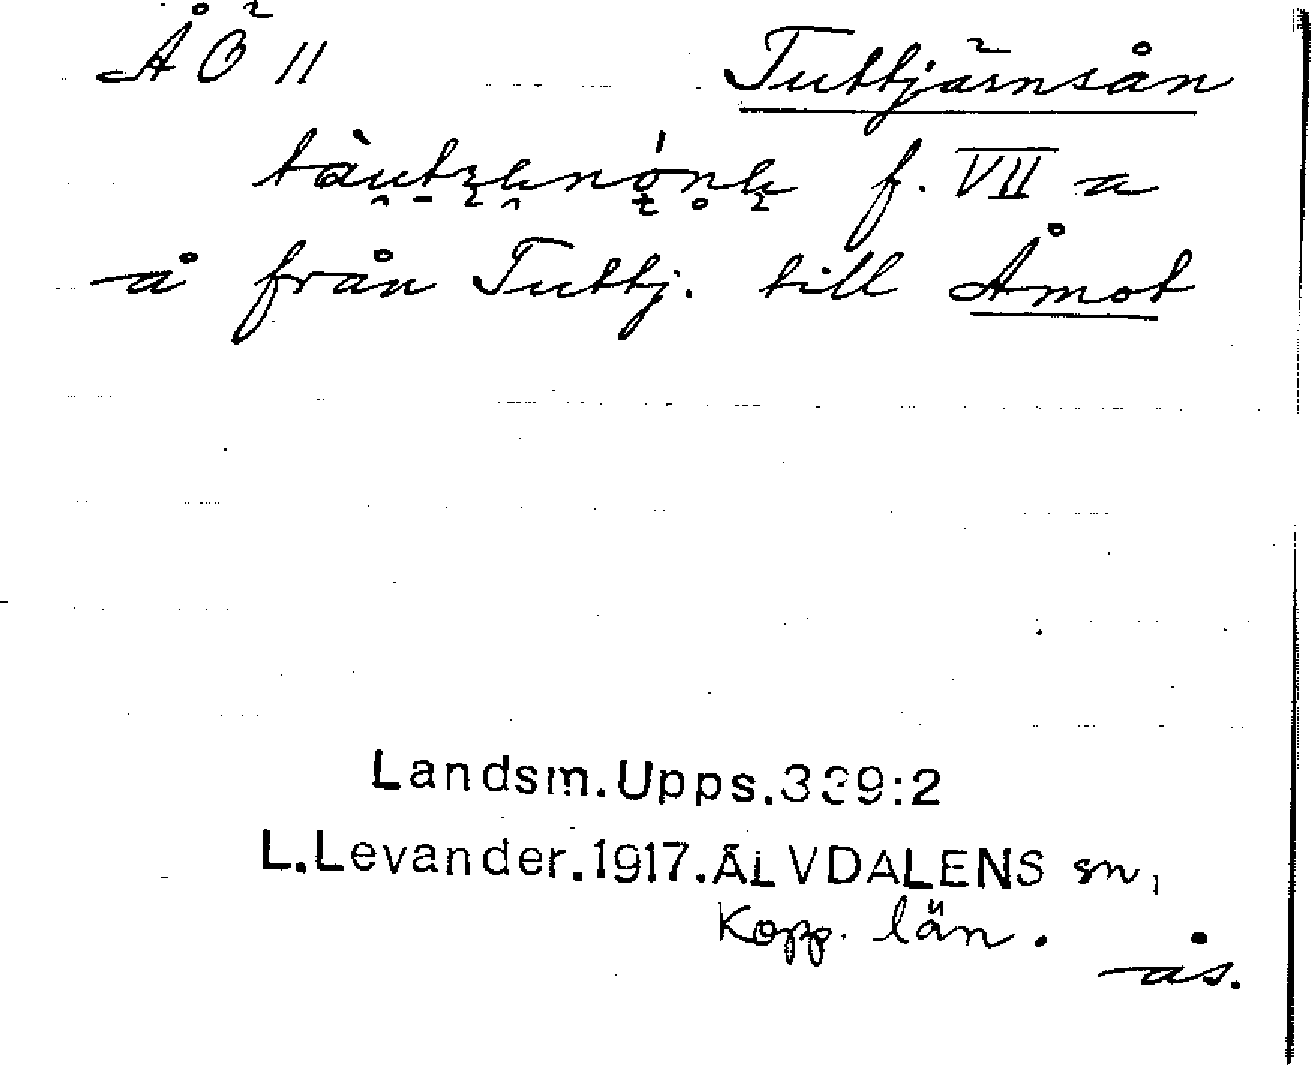 ÅÖ 11 Tuttjärnsån
f. VII a
å från Tuttj. till Åmot
Landsm.Upps.339:2
L.Levander.1917.ÄLVDALENS sn,
Kopp. län.
ås.